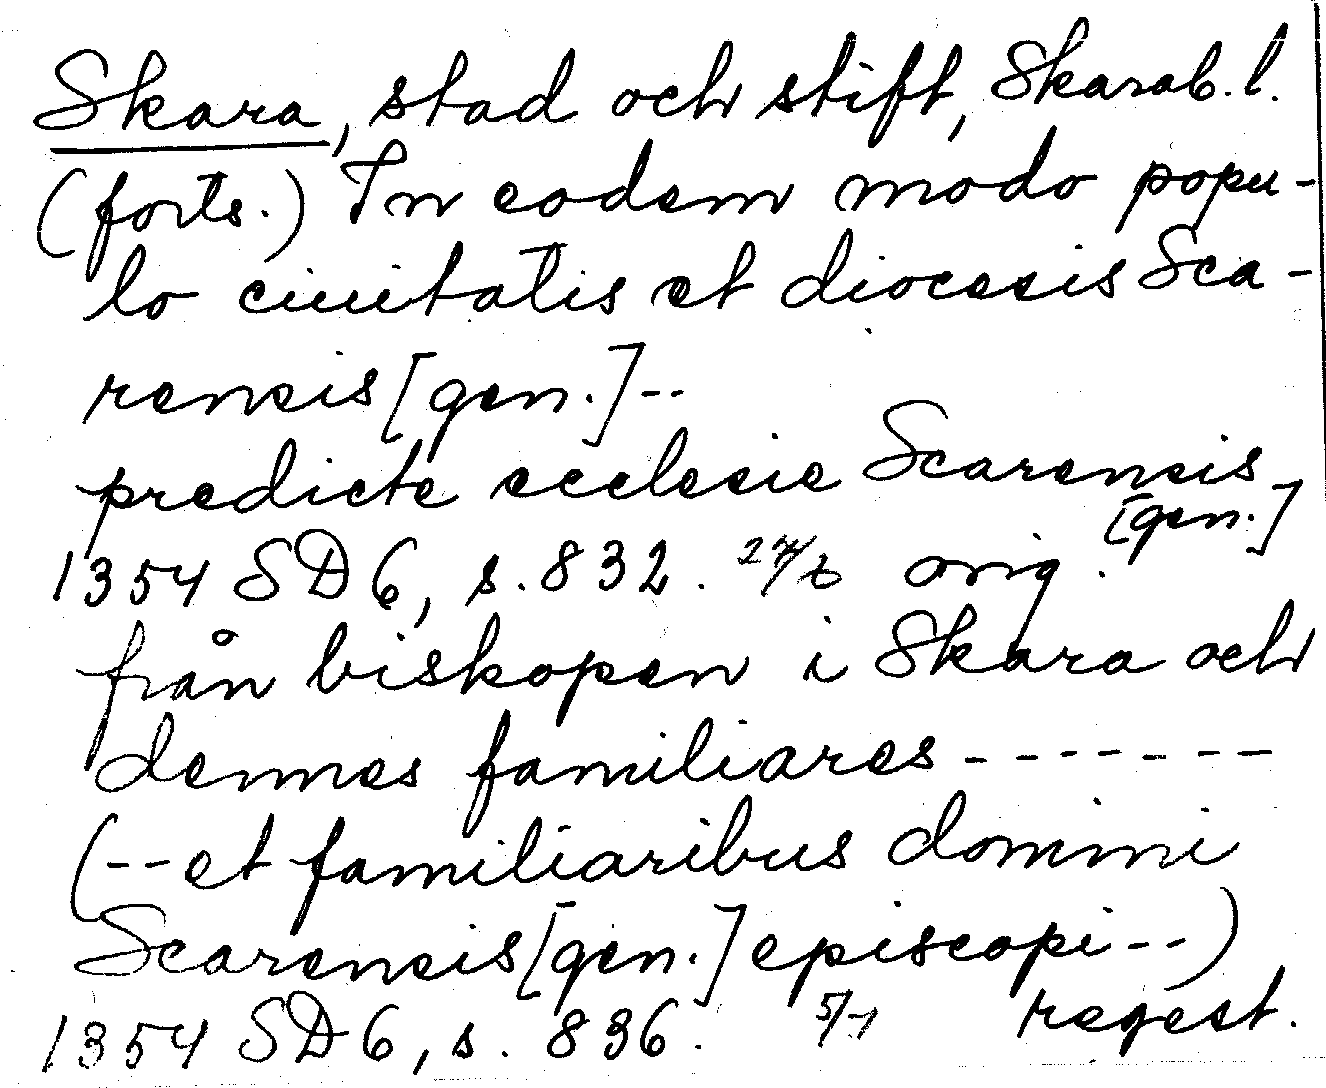 Skara, stad och stift, Skarab. l.
(forts.) In eodem modo popu-
lo ciuitatis et diocesis Sca-
rensis [gen.] --
predicte ecclesie Scarensis
[gen.]
1354 SD 6, s. 832. 27/6 orig.
från biskopen i Skara och
dennes familiares -------
(-- et familiaribus domini
Scarensis [gen.] episcopi --)
1354 SD 6, s. 836. 5/7 regest.